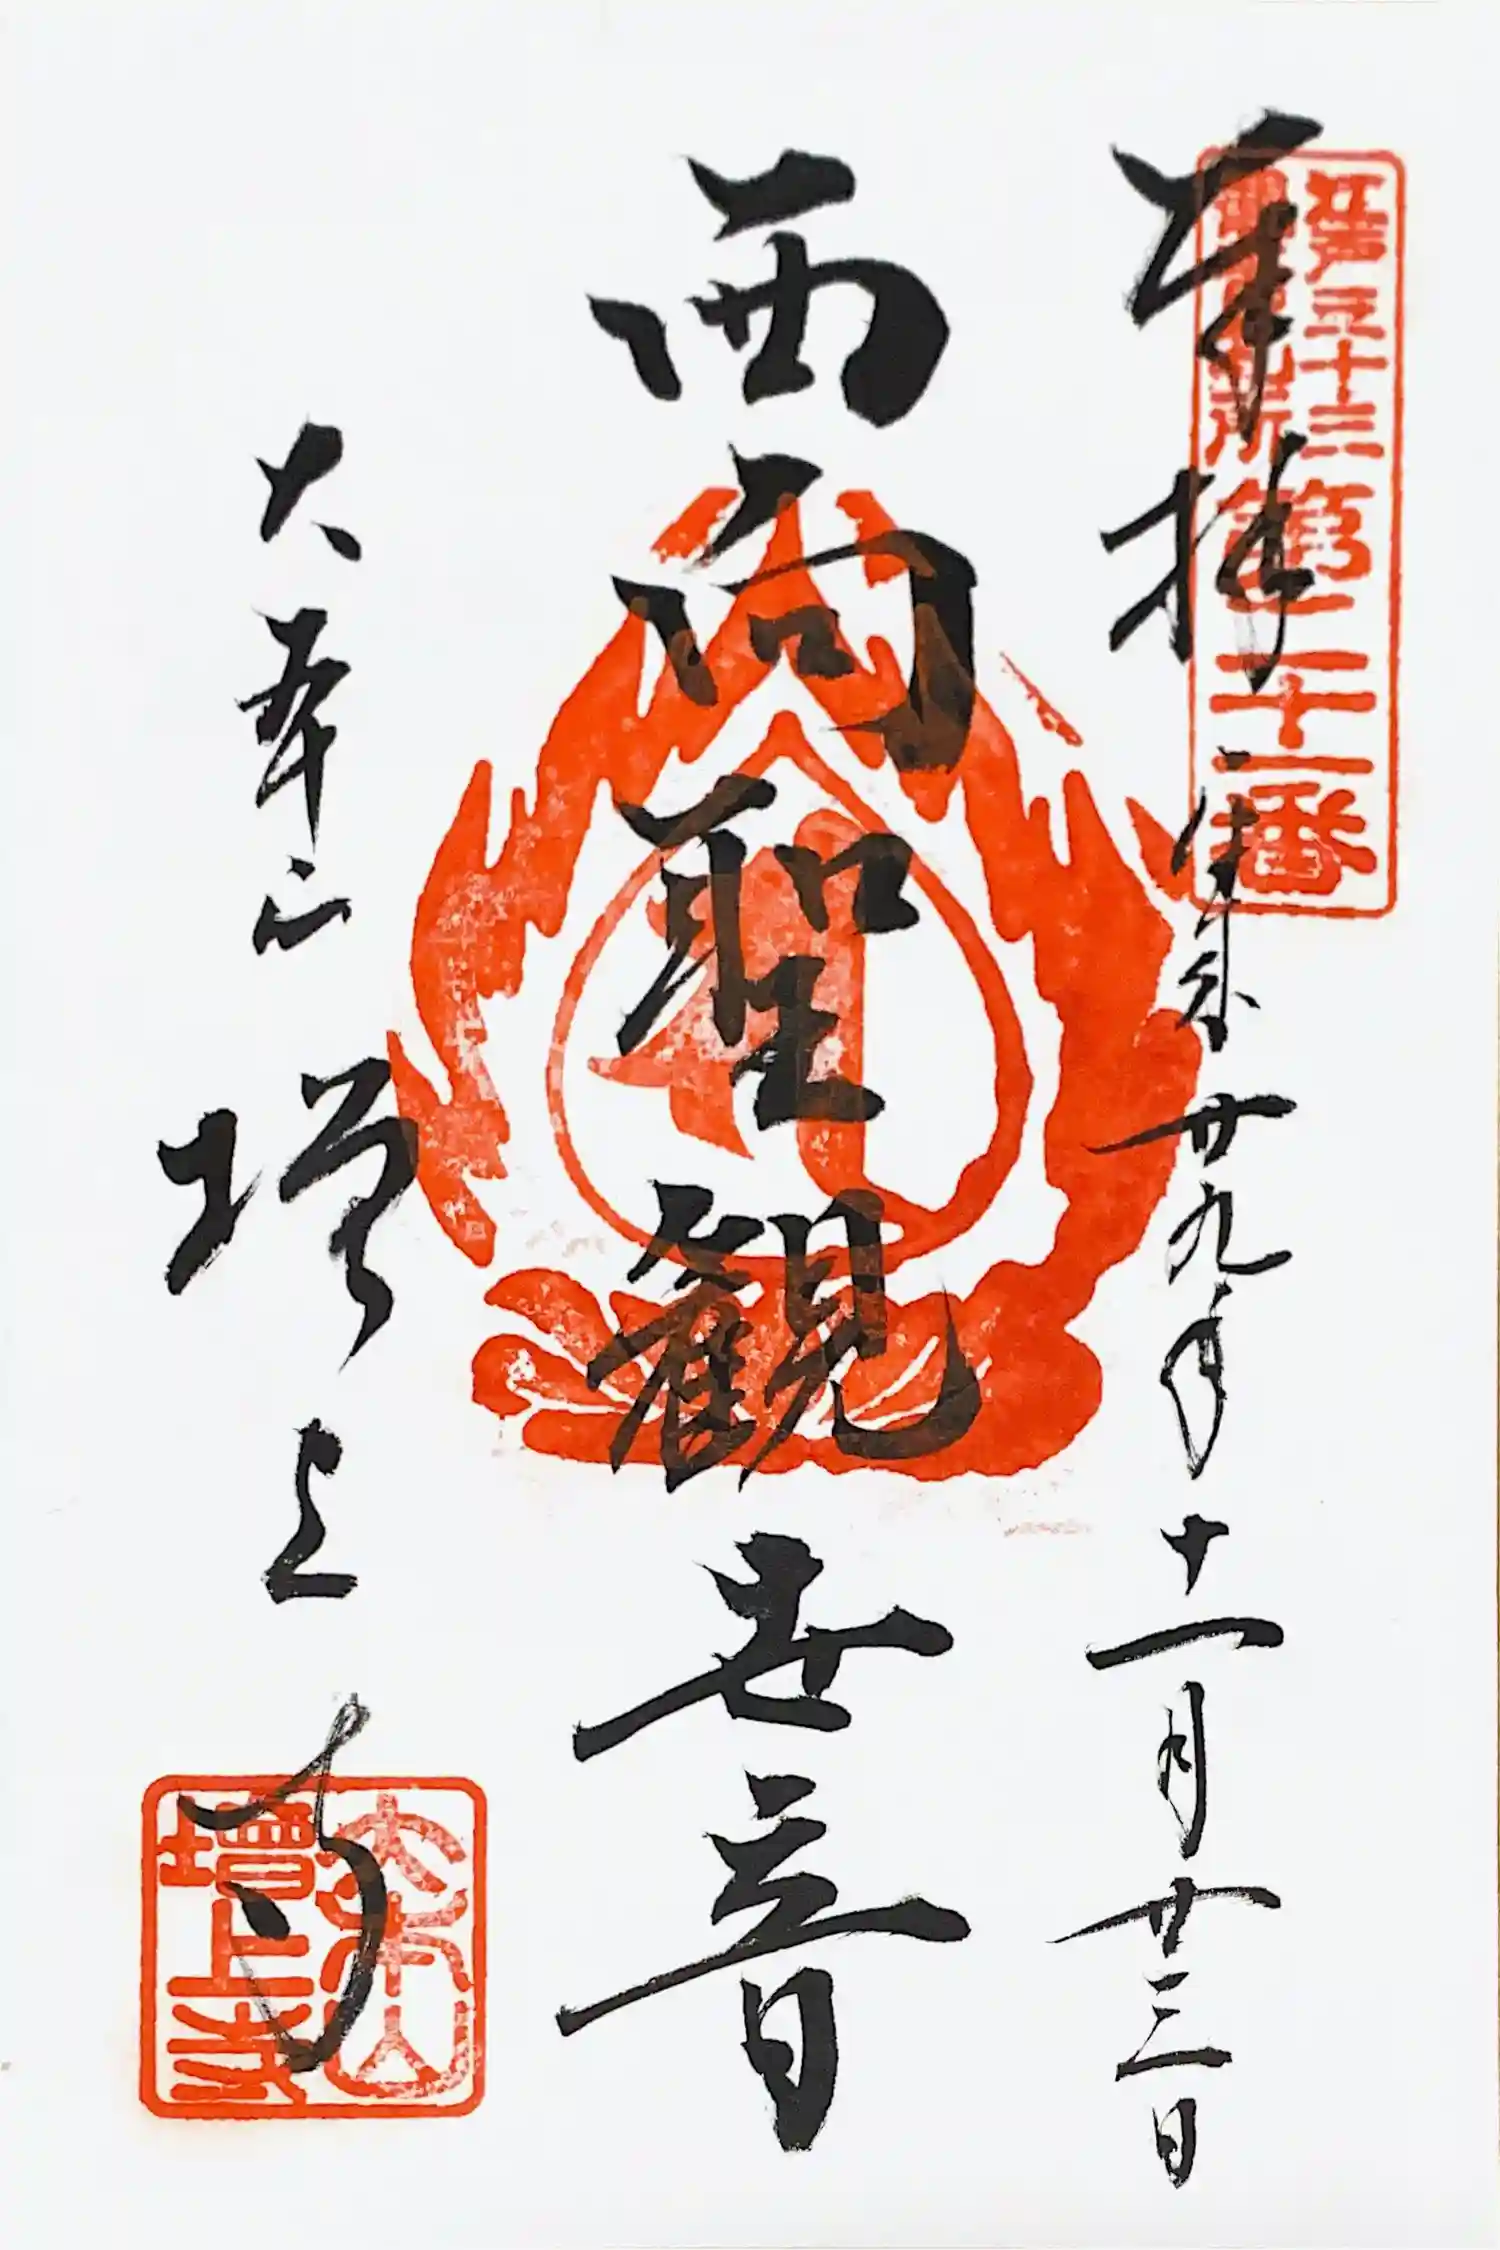 江戸三十三
観音札所
第二十一番
奉拝 平成廿九年十一月廿三日
西向聖観世音
大本山 増上寺
大本山
増上寺